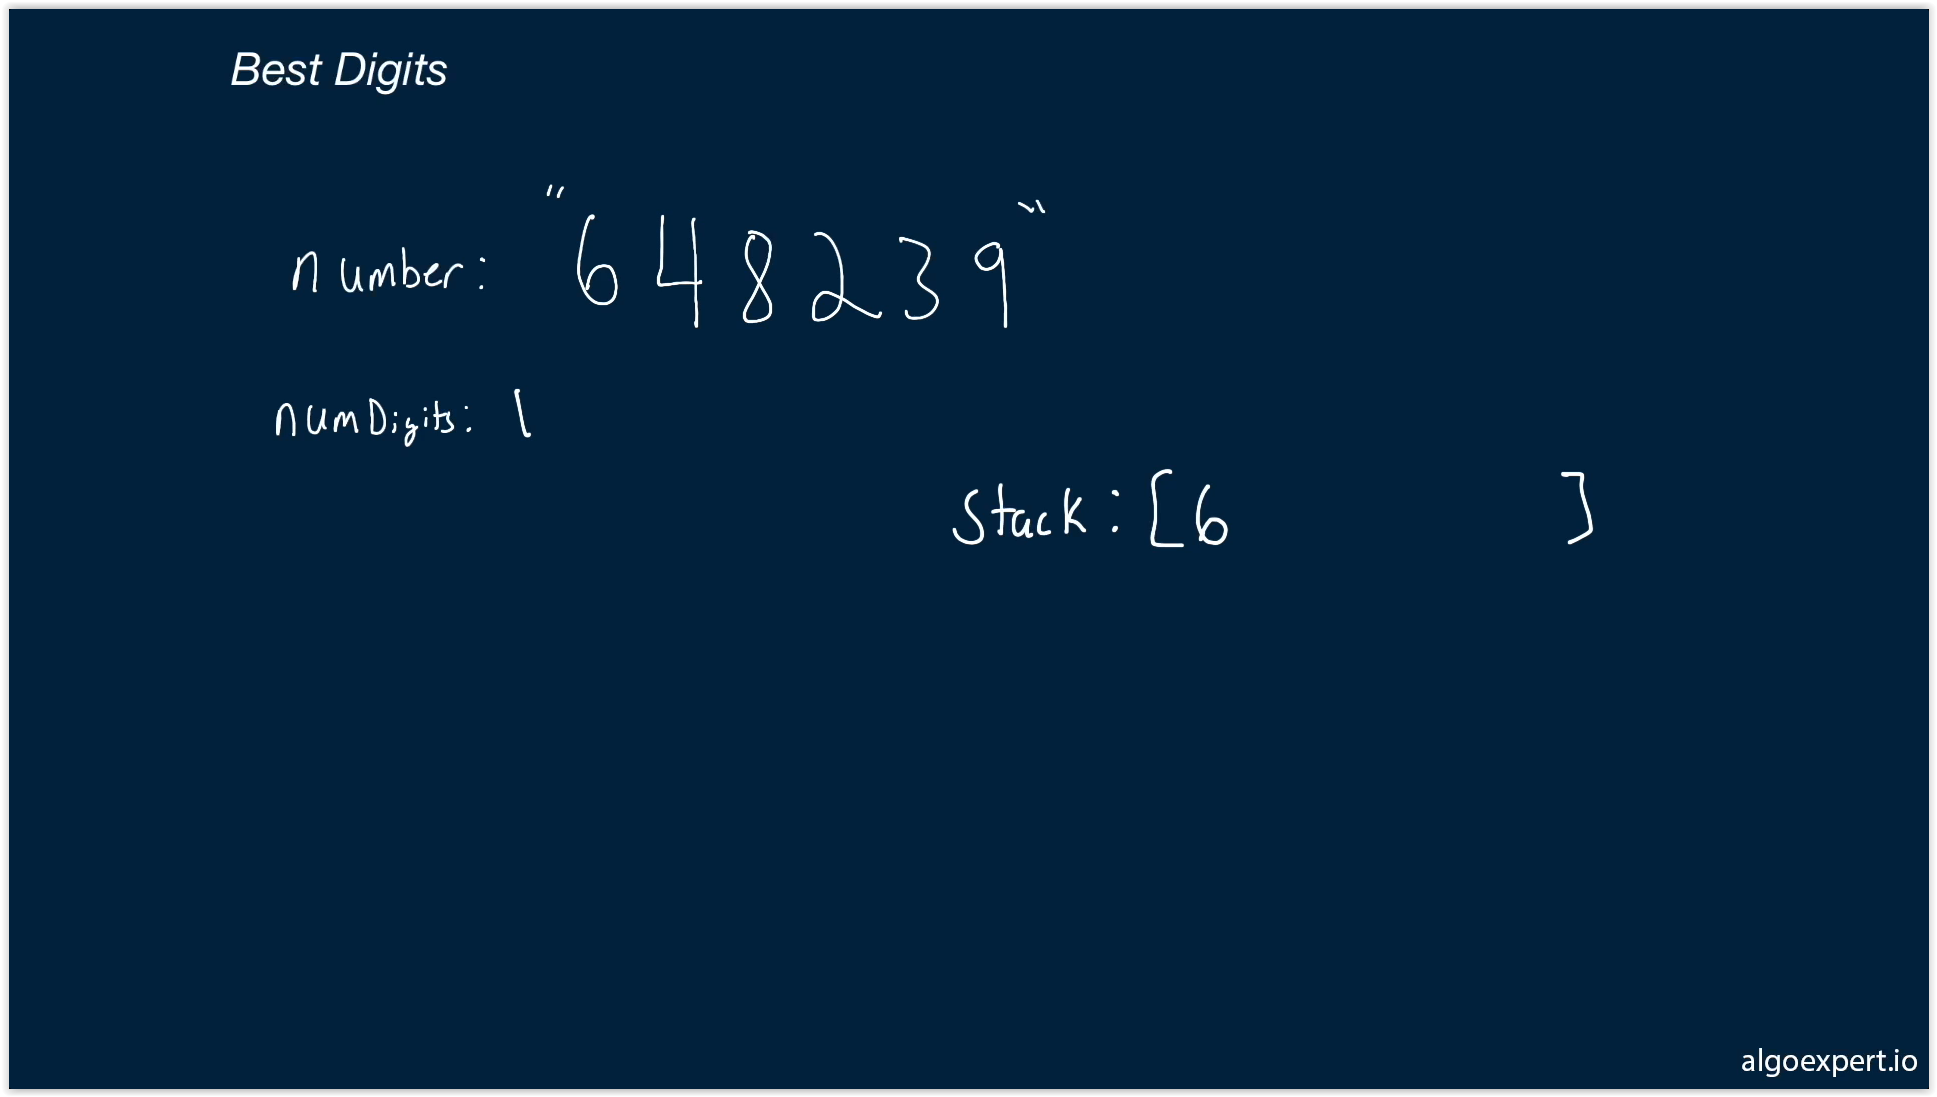 Best Digits
number: "648239"
numDigits: 1
Stack: [6 ]
algoexpert.io